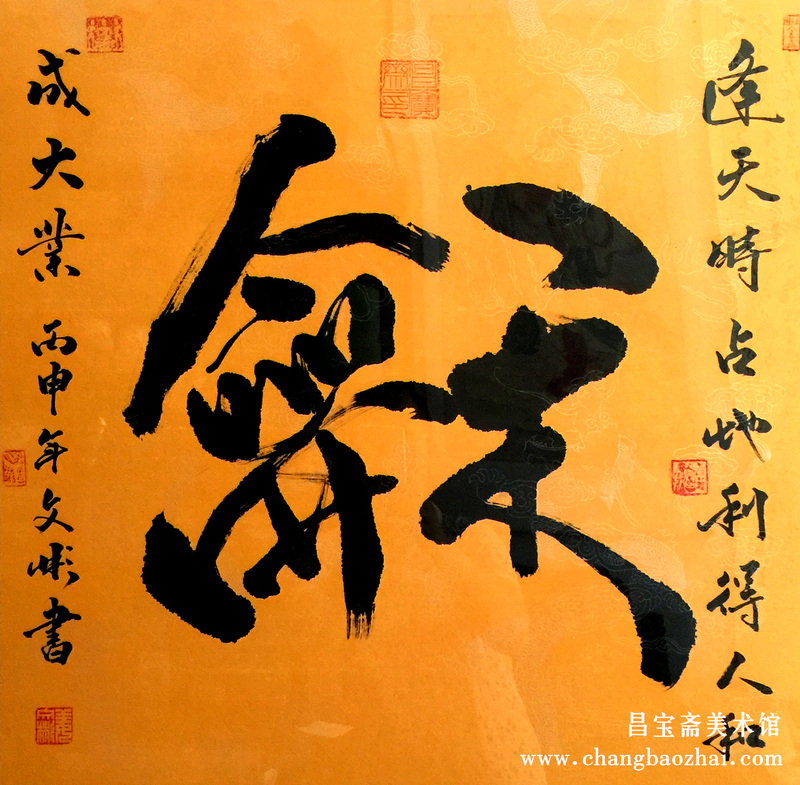 逢天時占地利得人和
龢
成大業 丙申年文彬書
昌寶齋印
昌宝斋美术馆
www.changbaozhai.com